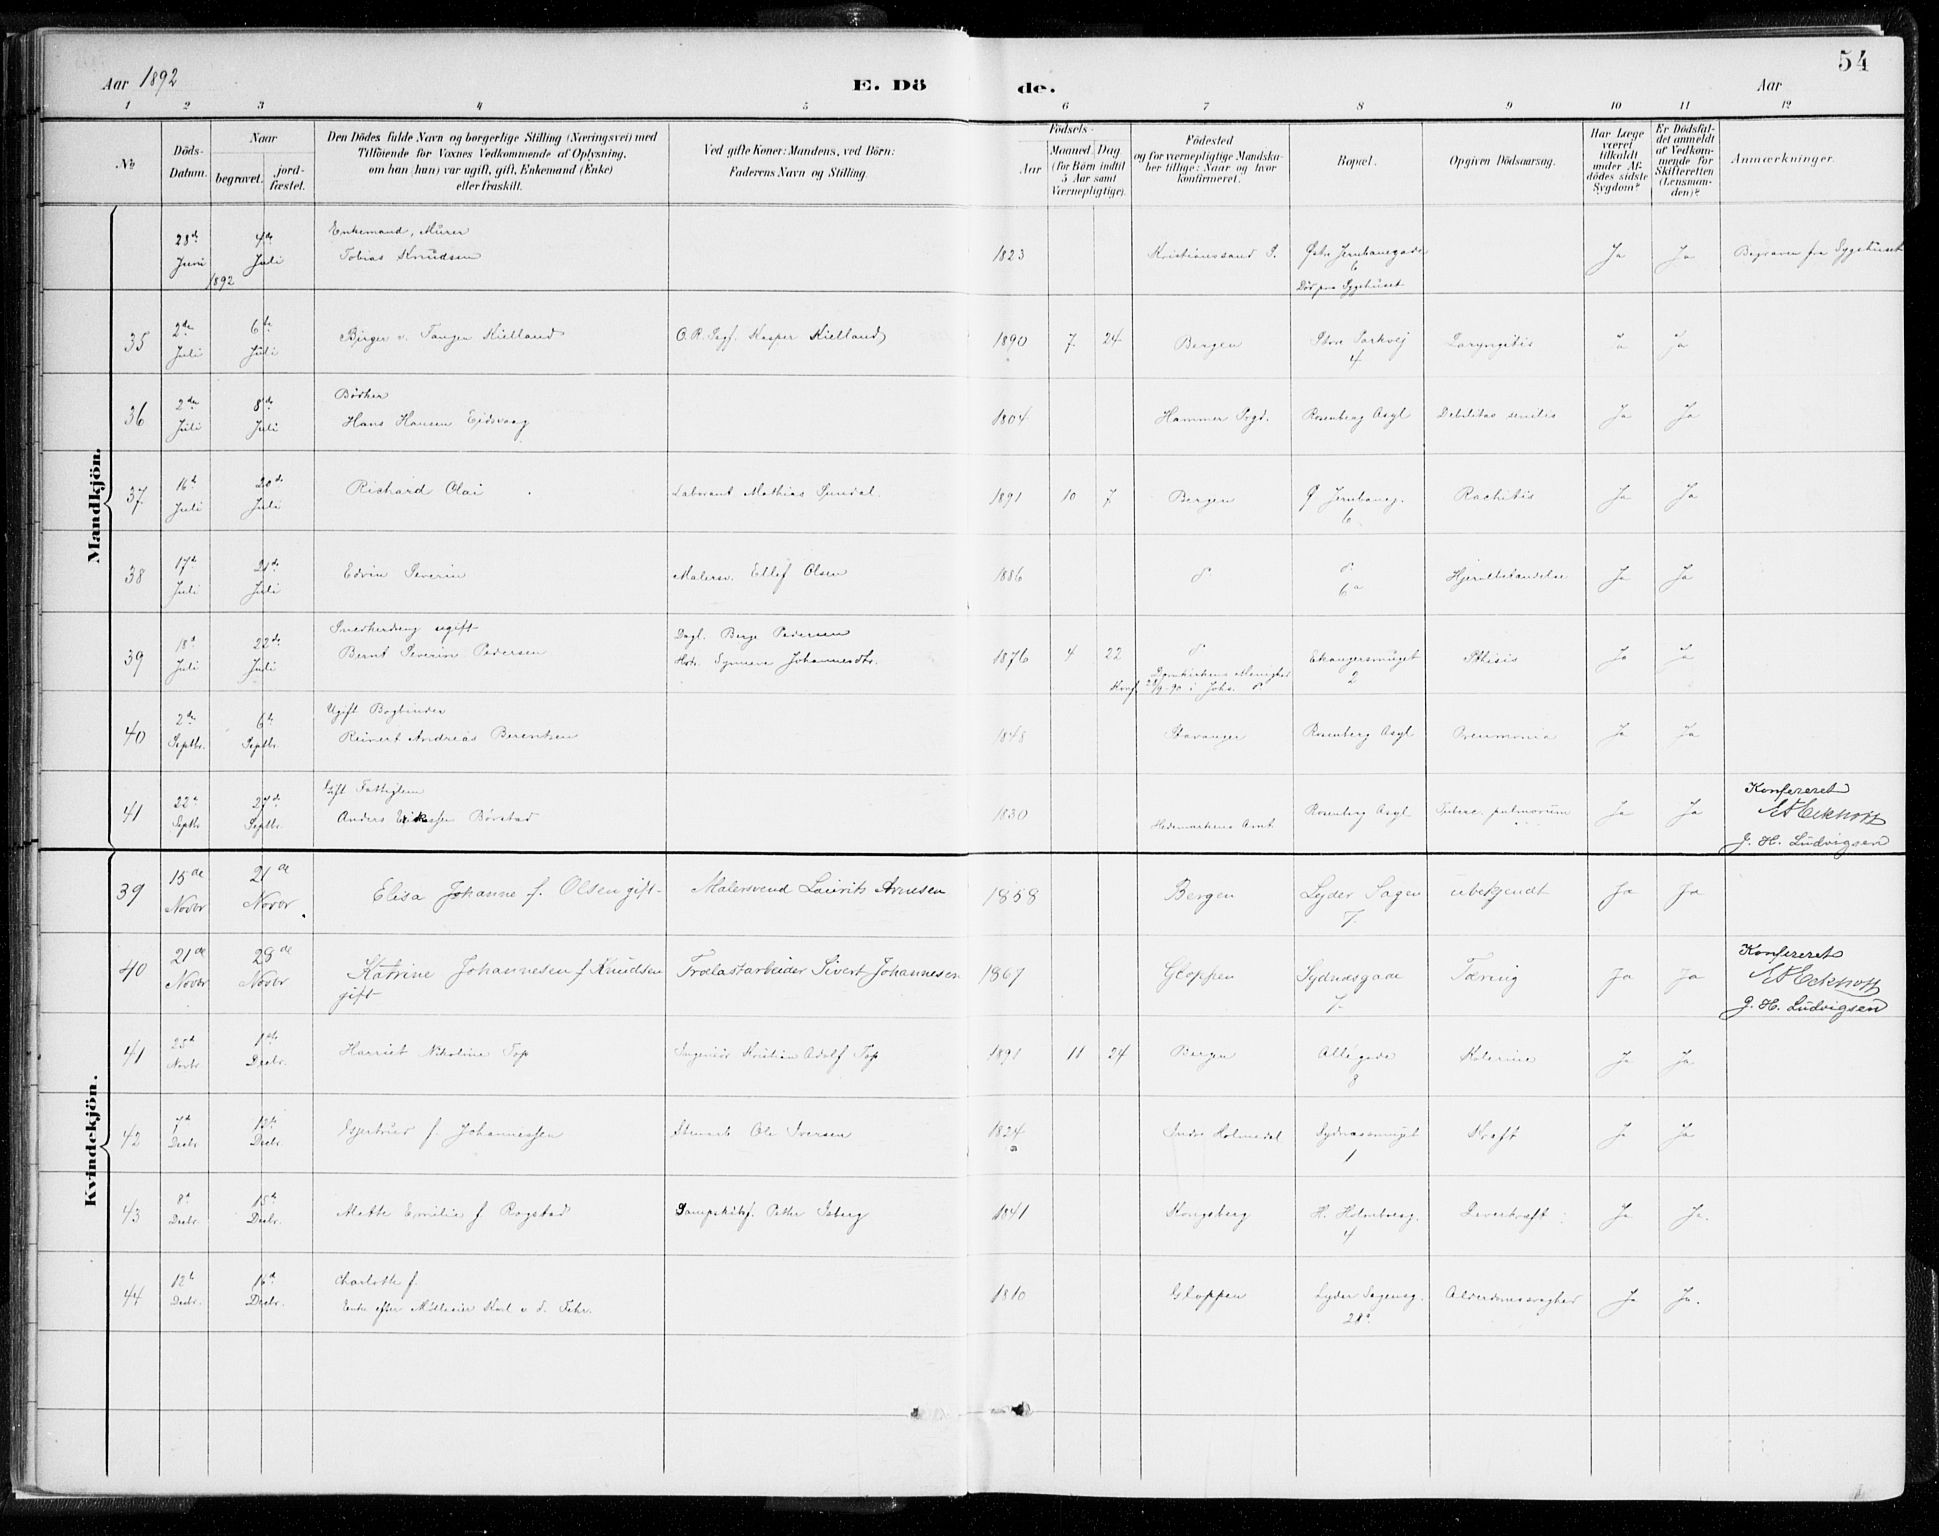 54
Aar 1892
E. Dö
de.
Aar
1 2 3 4 5 6 7 8 9 10 11 12
No
Döds-Datum.
Naar
begravet.
jord-fæstet.
Den Dödes fulde Navn og borgerlige Stilling (Næringsvei) med
Tilföiende for Voxnes Vedkommende af Oplysning,
om han (hun) var ugift, gift, Enkemand (Enke)
eller fraskilt.
Ved gifte Koner: Mandens, ved Börn:
Faderens Navn og Stilling.
Födsels-
Aar
Maaned. Dag
(for Börn indtil
5 Aar samt
Værnepligtige).
Födested
og for værnepligtige Mandska-
ber tillige: Naar og hvor
konfirmeret.
Bopæl.
Opgiven Dödsaarsag.
Har Læge
været
tilkaldt
under Af-
dödes sidste
Sygdom?
Er Dödsfal-
det anmeldt
af Vedkom-
mende for
Skifteretten
(Lensman-
den)?
Anmærkninger.
Mandkjön.
28de Juni 1892 4de Juli Enkemand, Murer
Tobias Knudsen 1823 Kristianssand S. Østre Jernbanegade
6
Død paa Sygehuset Ja Ja Begraven fra Sygehuset
35 2den Juli 6te Juli Birger v. Tangen Kielland O.R.Sagf. Kasper Kielland 1890 7 24 Bergen Parkvej
4 Laryngitis Ja Ja
36 2den Juli 8de Juli Bødker
Hans Hansen Eidsvaag 1804 Hammer Prgd. Rosenberg Asyl Debilitas senilis Ja Ja
37 16de Juli 20de Juli Richard Olai Laborant Mathias Sundal. 1891 10 7 Bergen Ø Jernbaneg.
6 Rachitis Ja Ja
38 17de Juli 21de Juli Edvin Severin Malersv. Ellef Olsen 1886 do do
6a Hjernebetændelse Ja Ja
39 18de Juli 22de Juli Snedkerdreng ugift
Bernt Severin Pedersen Dagl. Berge Pedersen
Hstr. Synneve Johannesdtr. 1876 4 22 do
Domkirkens Menighed
Konf. /9-90 i Johs. K
2 Pthisis Ja Ja
40 2den Septbr. 6te Septbr. Ugift Bogbinder
Reinert Andreas Berentsen 1848 Stavanger Rosenberg Asyl Pneumonia Ja Ja
41 22de Septbr 27de Septbr. Gift Fattiglem
Anders Eriksen Børstad 1830 Hedemarkens Amt Rosenberg Asyl Tuberc. pulmonum Ja Ja Konfereret
E.T. Eckhoff
J. H. Ludvigsen
Kvindekjön.
39 15de Novbr 21de Novbr Elisa Johanne f. Olsen gift- Malersvend Laurits Arnesen 1858 Bergen Lyder Sagen
7. ubekjendt Ja Ja
40 21de Novbr 28de Novbr Katrine Johannesen f Knudsen
gift Trælastarbeider Sivert Johannesen 1867 Gloppen Sydnæsgade
7. Tæring Ja Ja Konfereret
E.T. Eckhoff
J. H. Ludvigsen
41 25de Novbr 1ste Decbr. Harriet Nikoline Top Ingeniør Kristian Adolf Top 1891 11 24 Bergen Allégade
8 Kolerine Ja Ja
42 7de Decbr 13de Decbr. Gjertrud f Johannessen Stuert Ole Iversen 1824 Indre Holmedal Sydnæssmuget
1 Kræft Ja Ja
43 8de Decbr. 15de Decbr. Mette Emilie f Rogstad Dampskibsf. Petter Isberg 1841 Kongsberg H. Holmboesg.
4 Leverkræft Ja Ja.
44 12te Decbr. 16de Decbr. Charlotte f.
Enke efter Mølleeier Karl v. d. Fehr. 1810 Gloppen Lyder Sagensg.
21a Alderdomssvaghed Ja Ja.